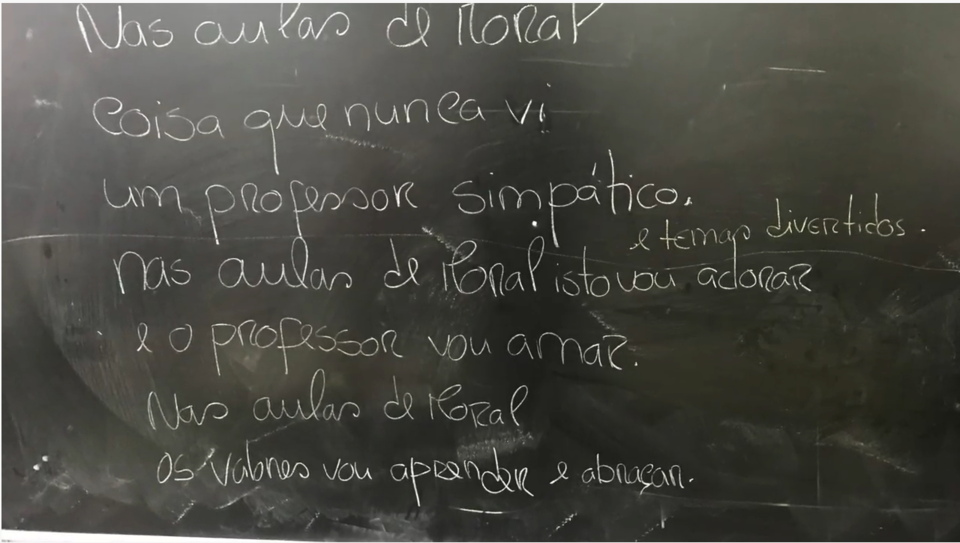 Nas aulas de Moral
Coisa que nunca vi
um professor simpático.
e temas divertidos.
nas aulas de Moral isto vou adorar
e o professor vou amar.
Nas aulas de Moral
os valores vou aprender e abraçar.